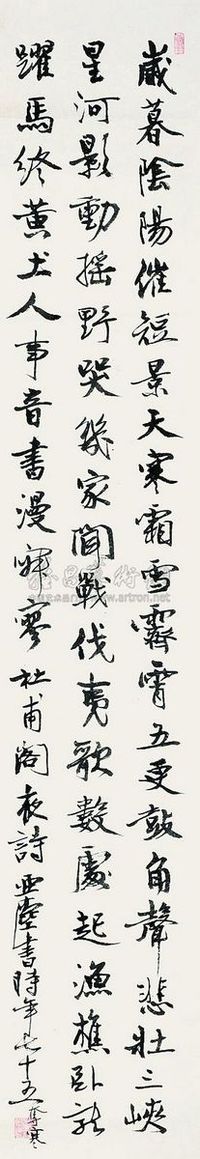 歲暮陰陽催短景天寒霜雪霽宵五更鼓角聲悲壯三峽
星河影動搖野哭幾家聞戰伐夷歌數處起漁樵臥龍
躍馬終黃土人事音書漫寂寥杜甫閣夜詩亞塵書時年七十五奪寒